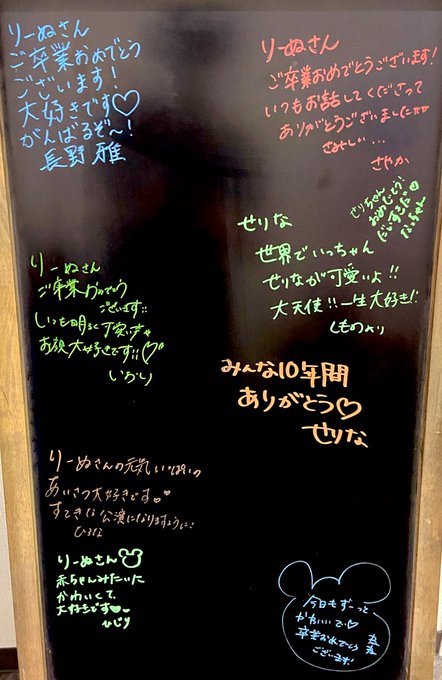 りーぬさん
ご卒業おめでとう
ございます！
大好きです♡
がんばるぞ〜！
長野 雅
りーぬさん
ご卒業おめでとうございます！
いつもお話してくださって
ありがとうございました
さみしい...
さやか
せりちゃん
おめでとう！
だいすきだヨ
せりな
世界でいっちゃん
せりなが可愛いよ！！
大天使！！一生大好き！！
しものえり
りーぬさん
ご卒業おめでとう
ございます！！
いつも明るく可愛い
お顔大好きです！！♡
いかり
みんな10年間
ありがとう♡
せりな
りーぬさんの元気いっぱいの
あいさつ大好きです♥♥
すてきな公演になりますように！
ひろな
りーぬさん
赤ちゃんみたいに
かわいくて、
大好きです♥♥
ひじり
今日もずーっと
かわいいで♡
卒業おめでとう
ございます！